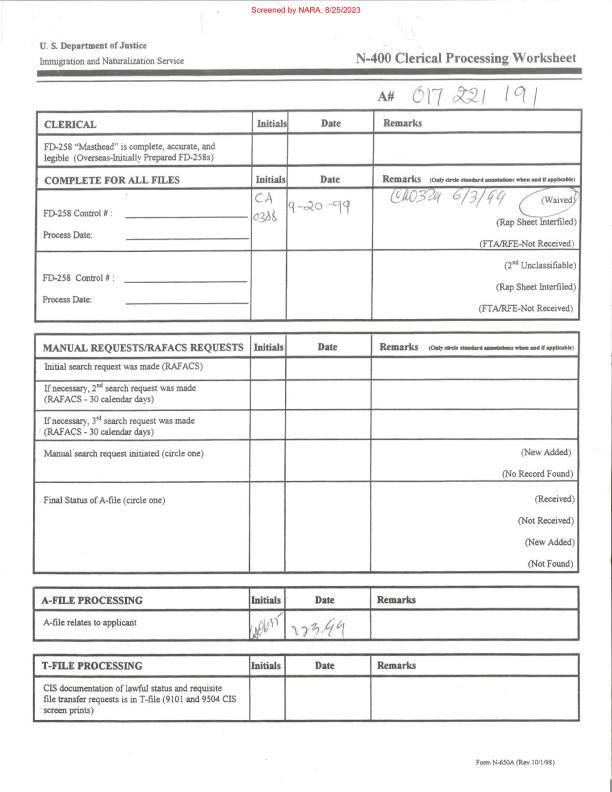 Screened by NARA, 8/25/2023
U. S. Department of Justice
Immigration and Naturalization Service
N-400 Clerical Processing Worksheet
A# 017 221 191
CLERICAL Initials Date Remarks
FD-258 "Masthead" is complete, accurate, and
legible (Overseas-Initially Prepared FD-258s)
COMPLETE FOR ALL FILES Initials Date Remarks (Only circle standard annotations when and if applicable)
CA 0388 9-20-99 6/3/99 (Waived)
FD-258 Control # :
(Rap Sheet Interfiled)
Process Date:
(FTA/RFE-Not Received)
(2nd Unclassifiable)
FD-258 Control # :
(Rap Sheet Interfiled)
Process Date:
(FTA/RFE-Not Received)
MANUAL REQUESTS/RAFACS REQUESTS Initials Date Remarks (Only circle standard annotations when and if applicable)
Initial search request was made (RAFACS)
If necessary, 2nd search request was made
(RAFACS - 30 calendar days)
If necessary, 3rd search request was made
(RAFACS - 30 calendar days)
Manual search request initiated (circle one) (New Added)
(No Record Found)
Final Status of A-file (circle one) (Received)
(Not Received)
(New Added)
(Not Found)
A-FILE PROCESSING Initials Date Remarks
A-file relates to applicant
T-FILE PROCESSING Initials Date Remarks
CIS documentation of lawful status and requisite
file transfer requests is in T-file (9101 and 9504 CIS
screen prints)
Form N-650A (Rev.10/1/98)